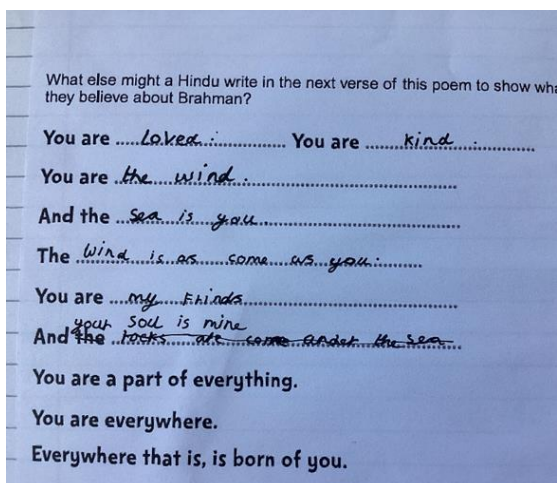 What else might a Hindu write in the next verse of this poem to show wha
they believe about Brahman?
You are .....Loved............... You are ........kind............
You are .the....wind.....................................
And the ..Sea is you...................................
The .Wind..is..as....come....as..you:.......
You are ....my....Frinds......................................
your soul is mine
And the ..rocks.....are...come..under..the sea.
You are a part of everything.
You are everywhere.
Everywhere that is, is born of you.